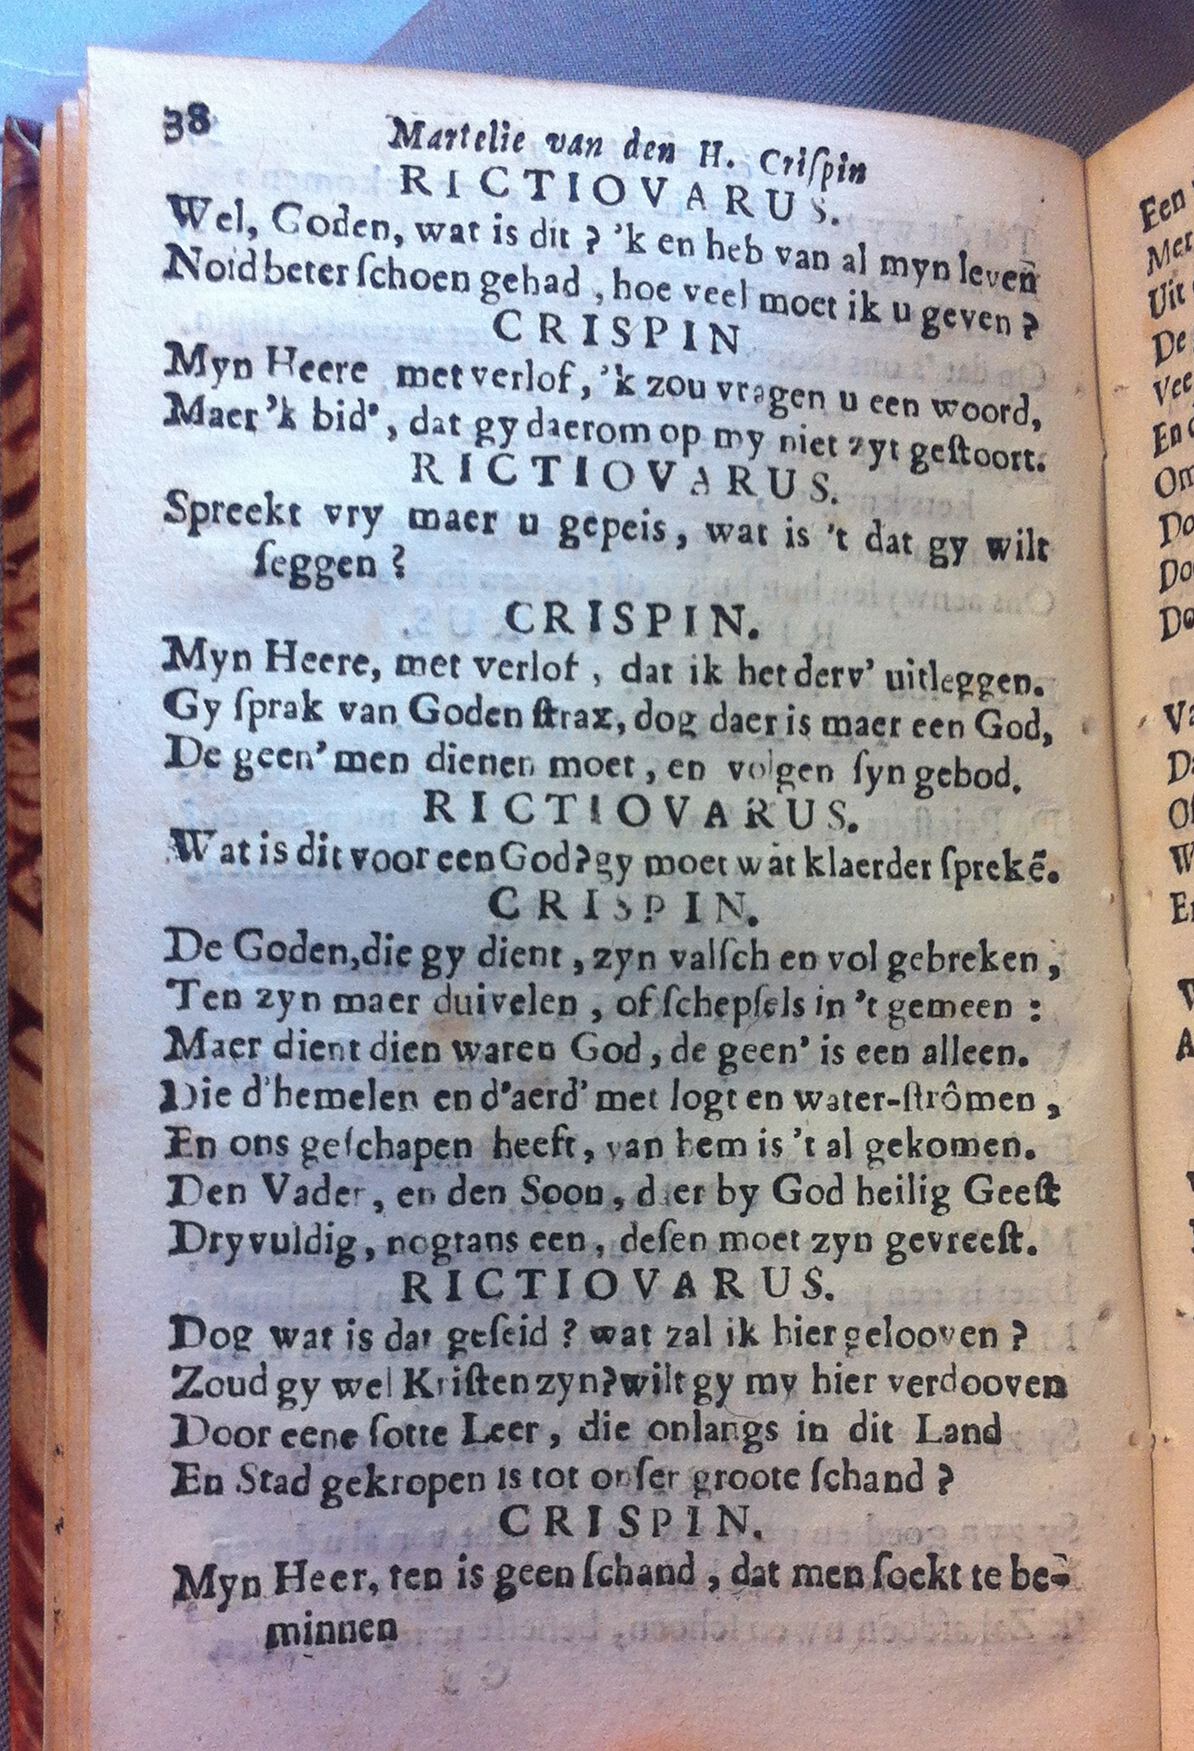 38
Martelie van den H. Criſpin
RICTIOVARUS.
Wel, Goden, wat is dit ? 'k en heb van al myn leven
Noid beter ſchoen gehad , hoe veel moet ik u geven ?
CRISPIN
Myn Heere met verlof, 'k zou vragen u een woord,
Maer 'k bid' , dat gy daerom op my niet zyt geſtoort.
RICTIOVARUS.
Spreekt vry maer u gepeis , wat is 't dat gy wilt
ſeggen ?
CRISPIN.
Myn Heere, met verlof , dat ik het derv' uitleggen.
Gy ſprak van Goden ſtrax, dog daer is maer een God,
De geen' men dienen moet , en volgen ſyn gebod.
RICTIOVARUS.
Wat is dit voor een God? gy moet wat klaerder ſprekē.
CRISPIN.
De Goden, die gy dient , zyn valſch en vol gebreken ,
Ten zyn maer duivelen , of ſchepſels in 't gemeen :
Maer dient dien waren God , de geen' is een alleen.
Die d'hemelen en d'aerd' met logt en water-ſtrômen ,
En ons geſchapen heeft , van hem is 't al gekomen.
Den Vader , en den Soon , daer by God heilig Geeſt
Dryvuldig , nogtans een , deſen moet zyn gevreeſt.
RICTIOVARUS.
Dog wat is dat geſeid ? wat zal ik hier gelooven ?
Zoud gy wel Kriſten zyn? wilt gy my hier verdooven
Door eene ſotte Leer , die onlangs in dit Land
En Stad gekropen is tot onſer groote ſchand ?
CRISPIN.
Myn Heer, ten is geen ſchand , dat men ſoekt te be-
minnen
Een
Uit
De